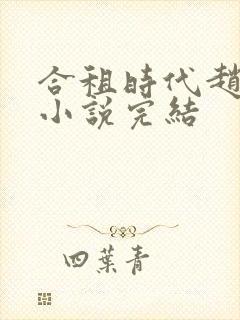 合租時代趙
小說完結
四葉青